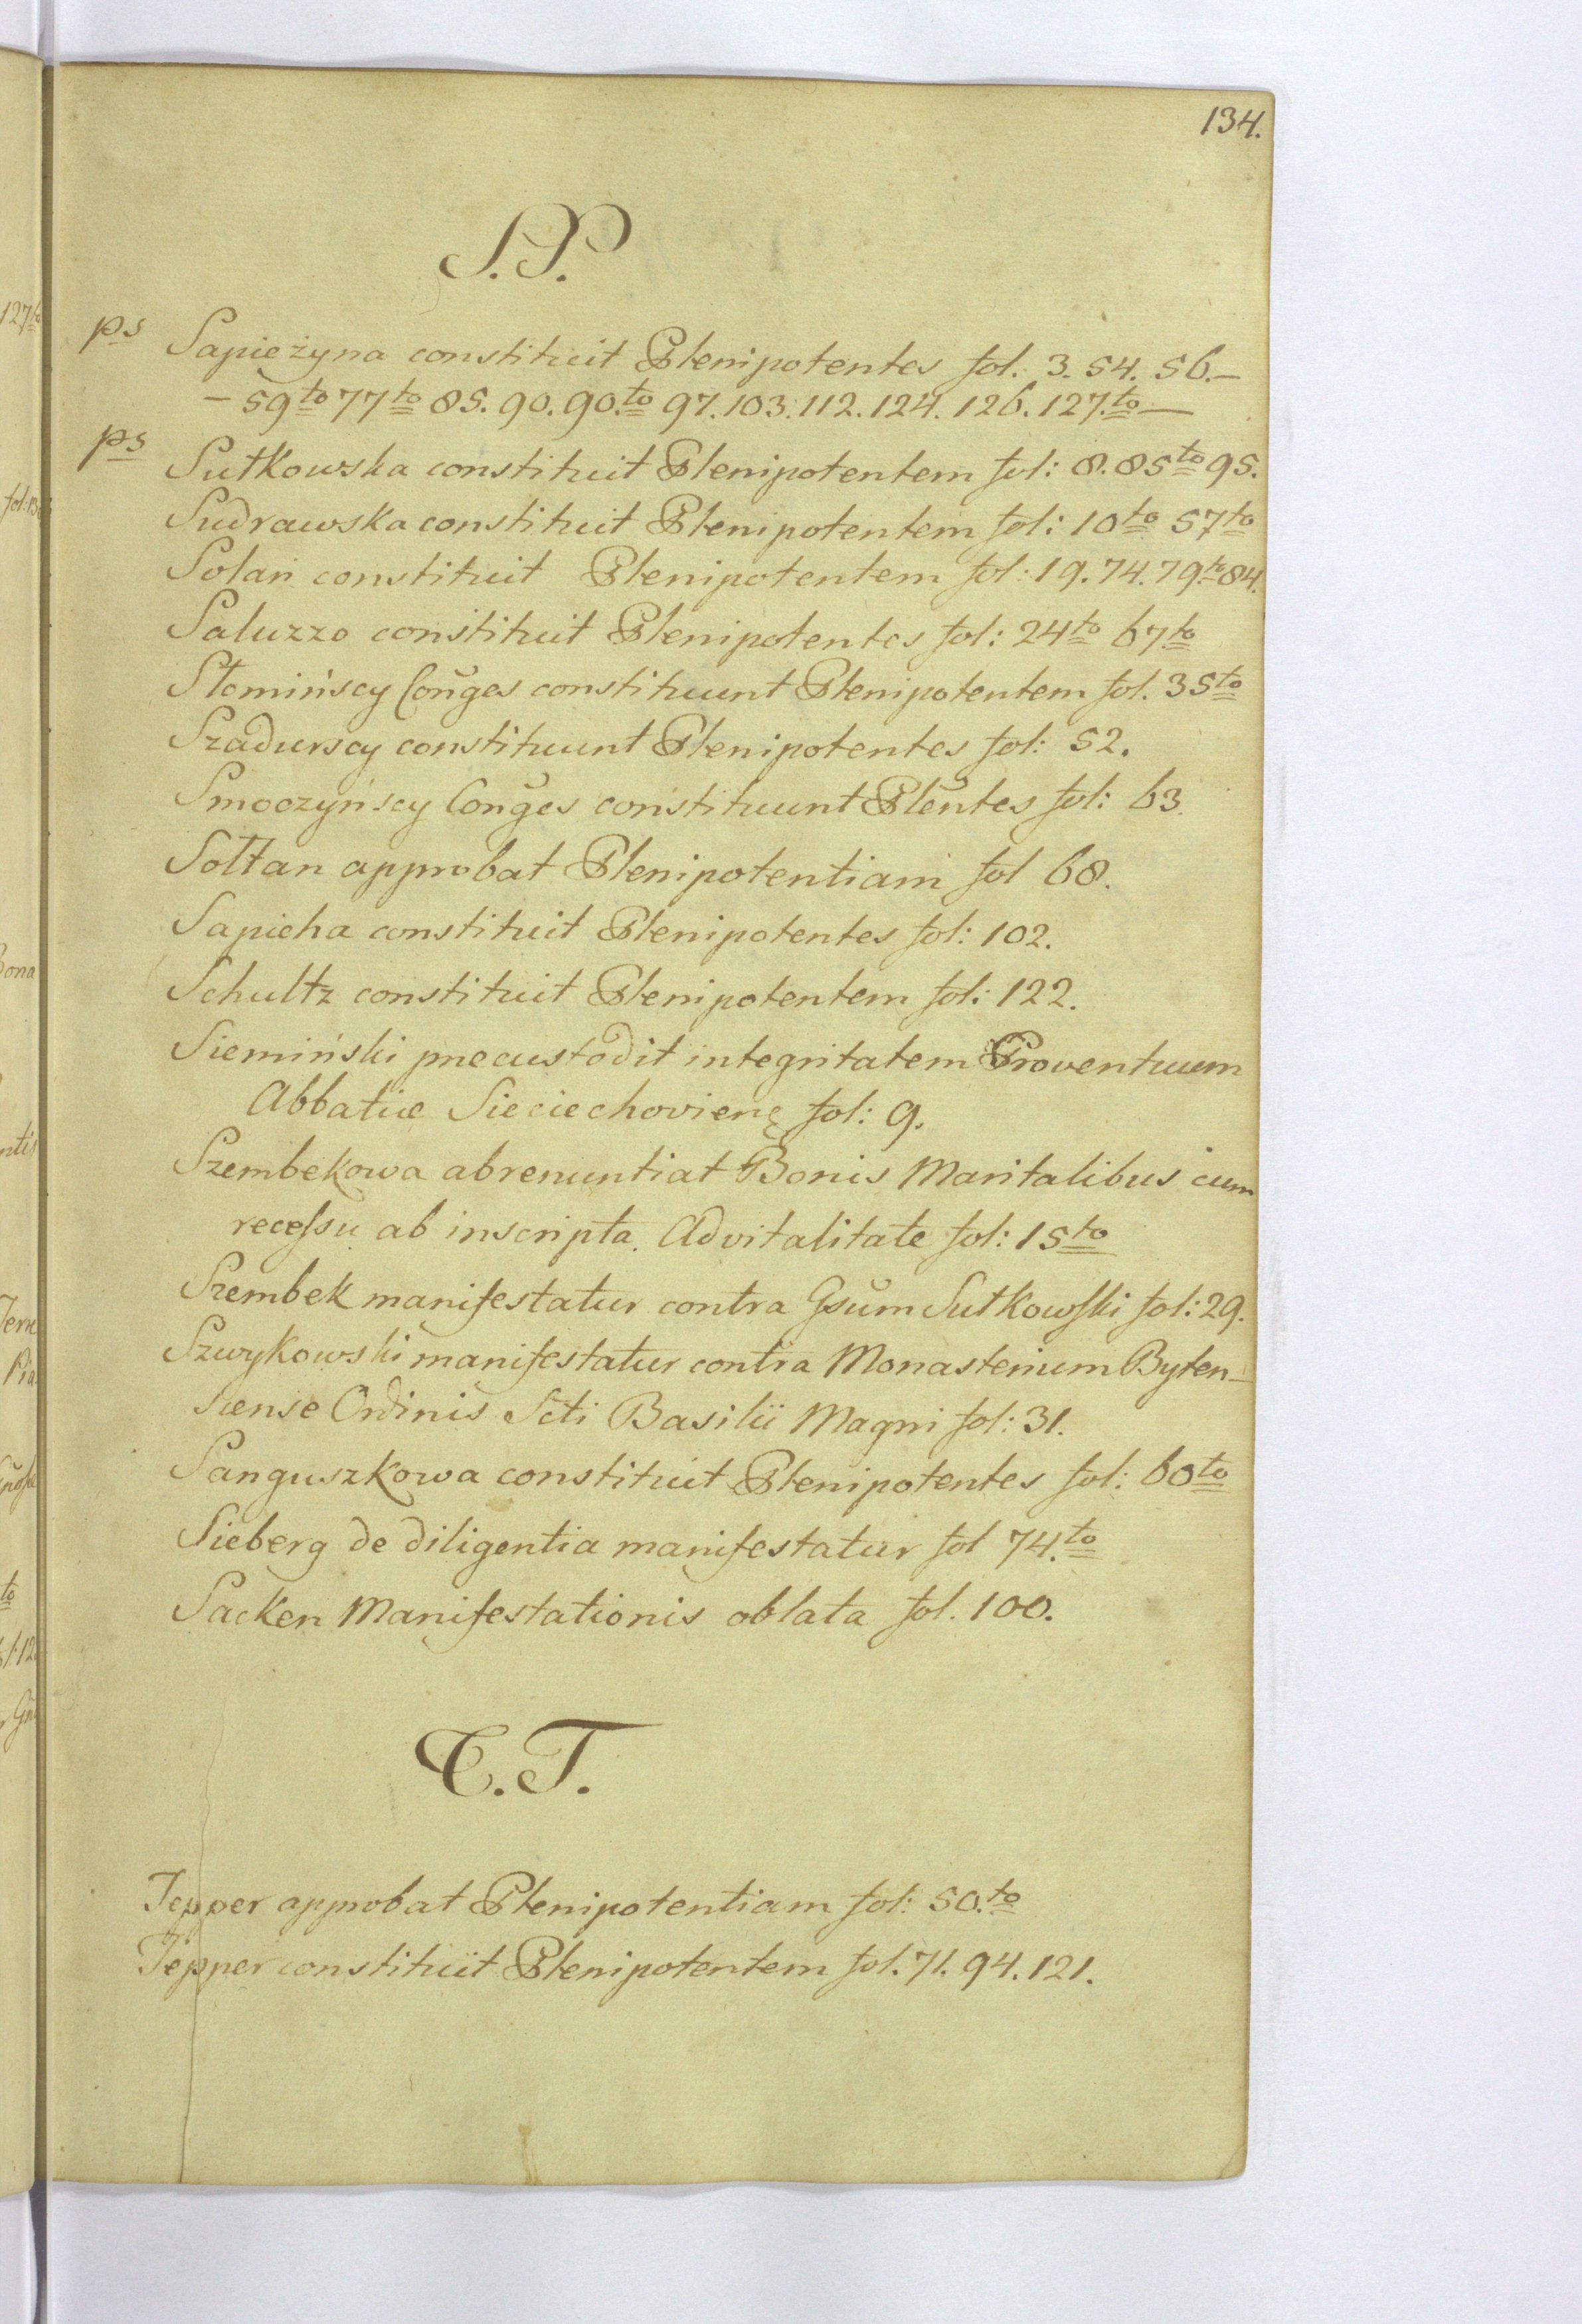 134.
S. S.
ps Sapieżyna constituit Plenipotentes fol. 3. 54. 56.–
– 59to 77to 85. 90. 90.to 97. 103. 112. 124. 126. 127.to –
ps Sułkowska constituit Plenipotentem fol: 8. 85to 95.
Sudrawska constituit Plenipotentem fol: 10to 57to
Solari constituit Plenipotentem fol: 19. 74. 79.to 84.
Saluzzo constituit Plenipotentes fol: 24to 67to
Słomińscy Conges constituunt Plenipotentem fol. 35to
Szadurscy constituunt Plenipotentes fol: 52.
Smoczyńscy Conges constituunt Plentes fol: 63.
Sołtan approbat Plenipotentiam fol 68.
Sapieha constituit Plenipotentes fol: 102.
Schultz constituit Plenipotentem fol: 122.
Siemiński præcustodit integritatem Proventuum
Abbatiæ Sieciechovienę fol: 9.
Szembekowa abrenuntiat Bonis Maritalibus cum
recessu ab inscripta Advitalitate fol: 15to
Szembek manifestatur contra Gsum Sułkowski fol: 29.
Szwykowski manifestatur contra Monasterium Byten–
siense Ordinis Scti Basilii Magni fol: 31.
Sanguszkowa constituit Plenipotentes fol: 60to
Sieberg de diligentia manifestatur fol 74.to
Sacken Manifestationis oblata fol. 100.
T. T.
Tepper approbat Plenipotentiam fol: 50.to
Tepper constituit Plenipotentem fol. 71. 94. 121.